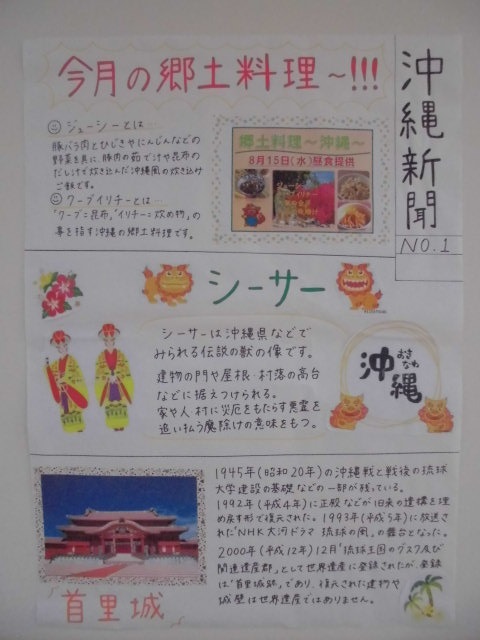 沖縄新聞
NO.1
今月の郷土料理~!!!
ジューシーとは…
豚バラ肉とひじきやにんじんなどの
野菜を具に、豚肉の茹で汁や昆布の
だし汁で炊き込んだ沖縄風の炊き込み
ご飯です。
クーブイリチーとは…
「クーブ=昆布」「イリチー=炒め物」の
事を指す沖縄の郷土料理です。
郷土料理~沖縄~
8月15日(水)昼食提供
シーサー
シーサーは沖縄県などで
みられる伝説の獣の像です。
建物の門や屋根・村落の高台
などに据えつけられる。
家や人、村に災厄をもたらす悪霊を
追い払う魔除けの意味をもつ。
おきなわ
沖縄
1945年(昭和20年)の沖縄戦と戦後の琉球
大学建設の基礎などの一部が残っている。
1992年(平成4年)に正殿などが旧来の遺構を埋
め戻す形で復元された。1993年(平成5年)に放送さ
れた「NHK大河ドラマ 琉球の風」の舞台となった。
2000年(平成12年)12月「琉球王国のグスク及び
関連遺産郡」として世界遺産に登録されたが、登録
は「首里城跡」であり、復元された建物や
城壁は世界遺産ではありません。
首里城